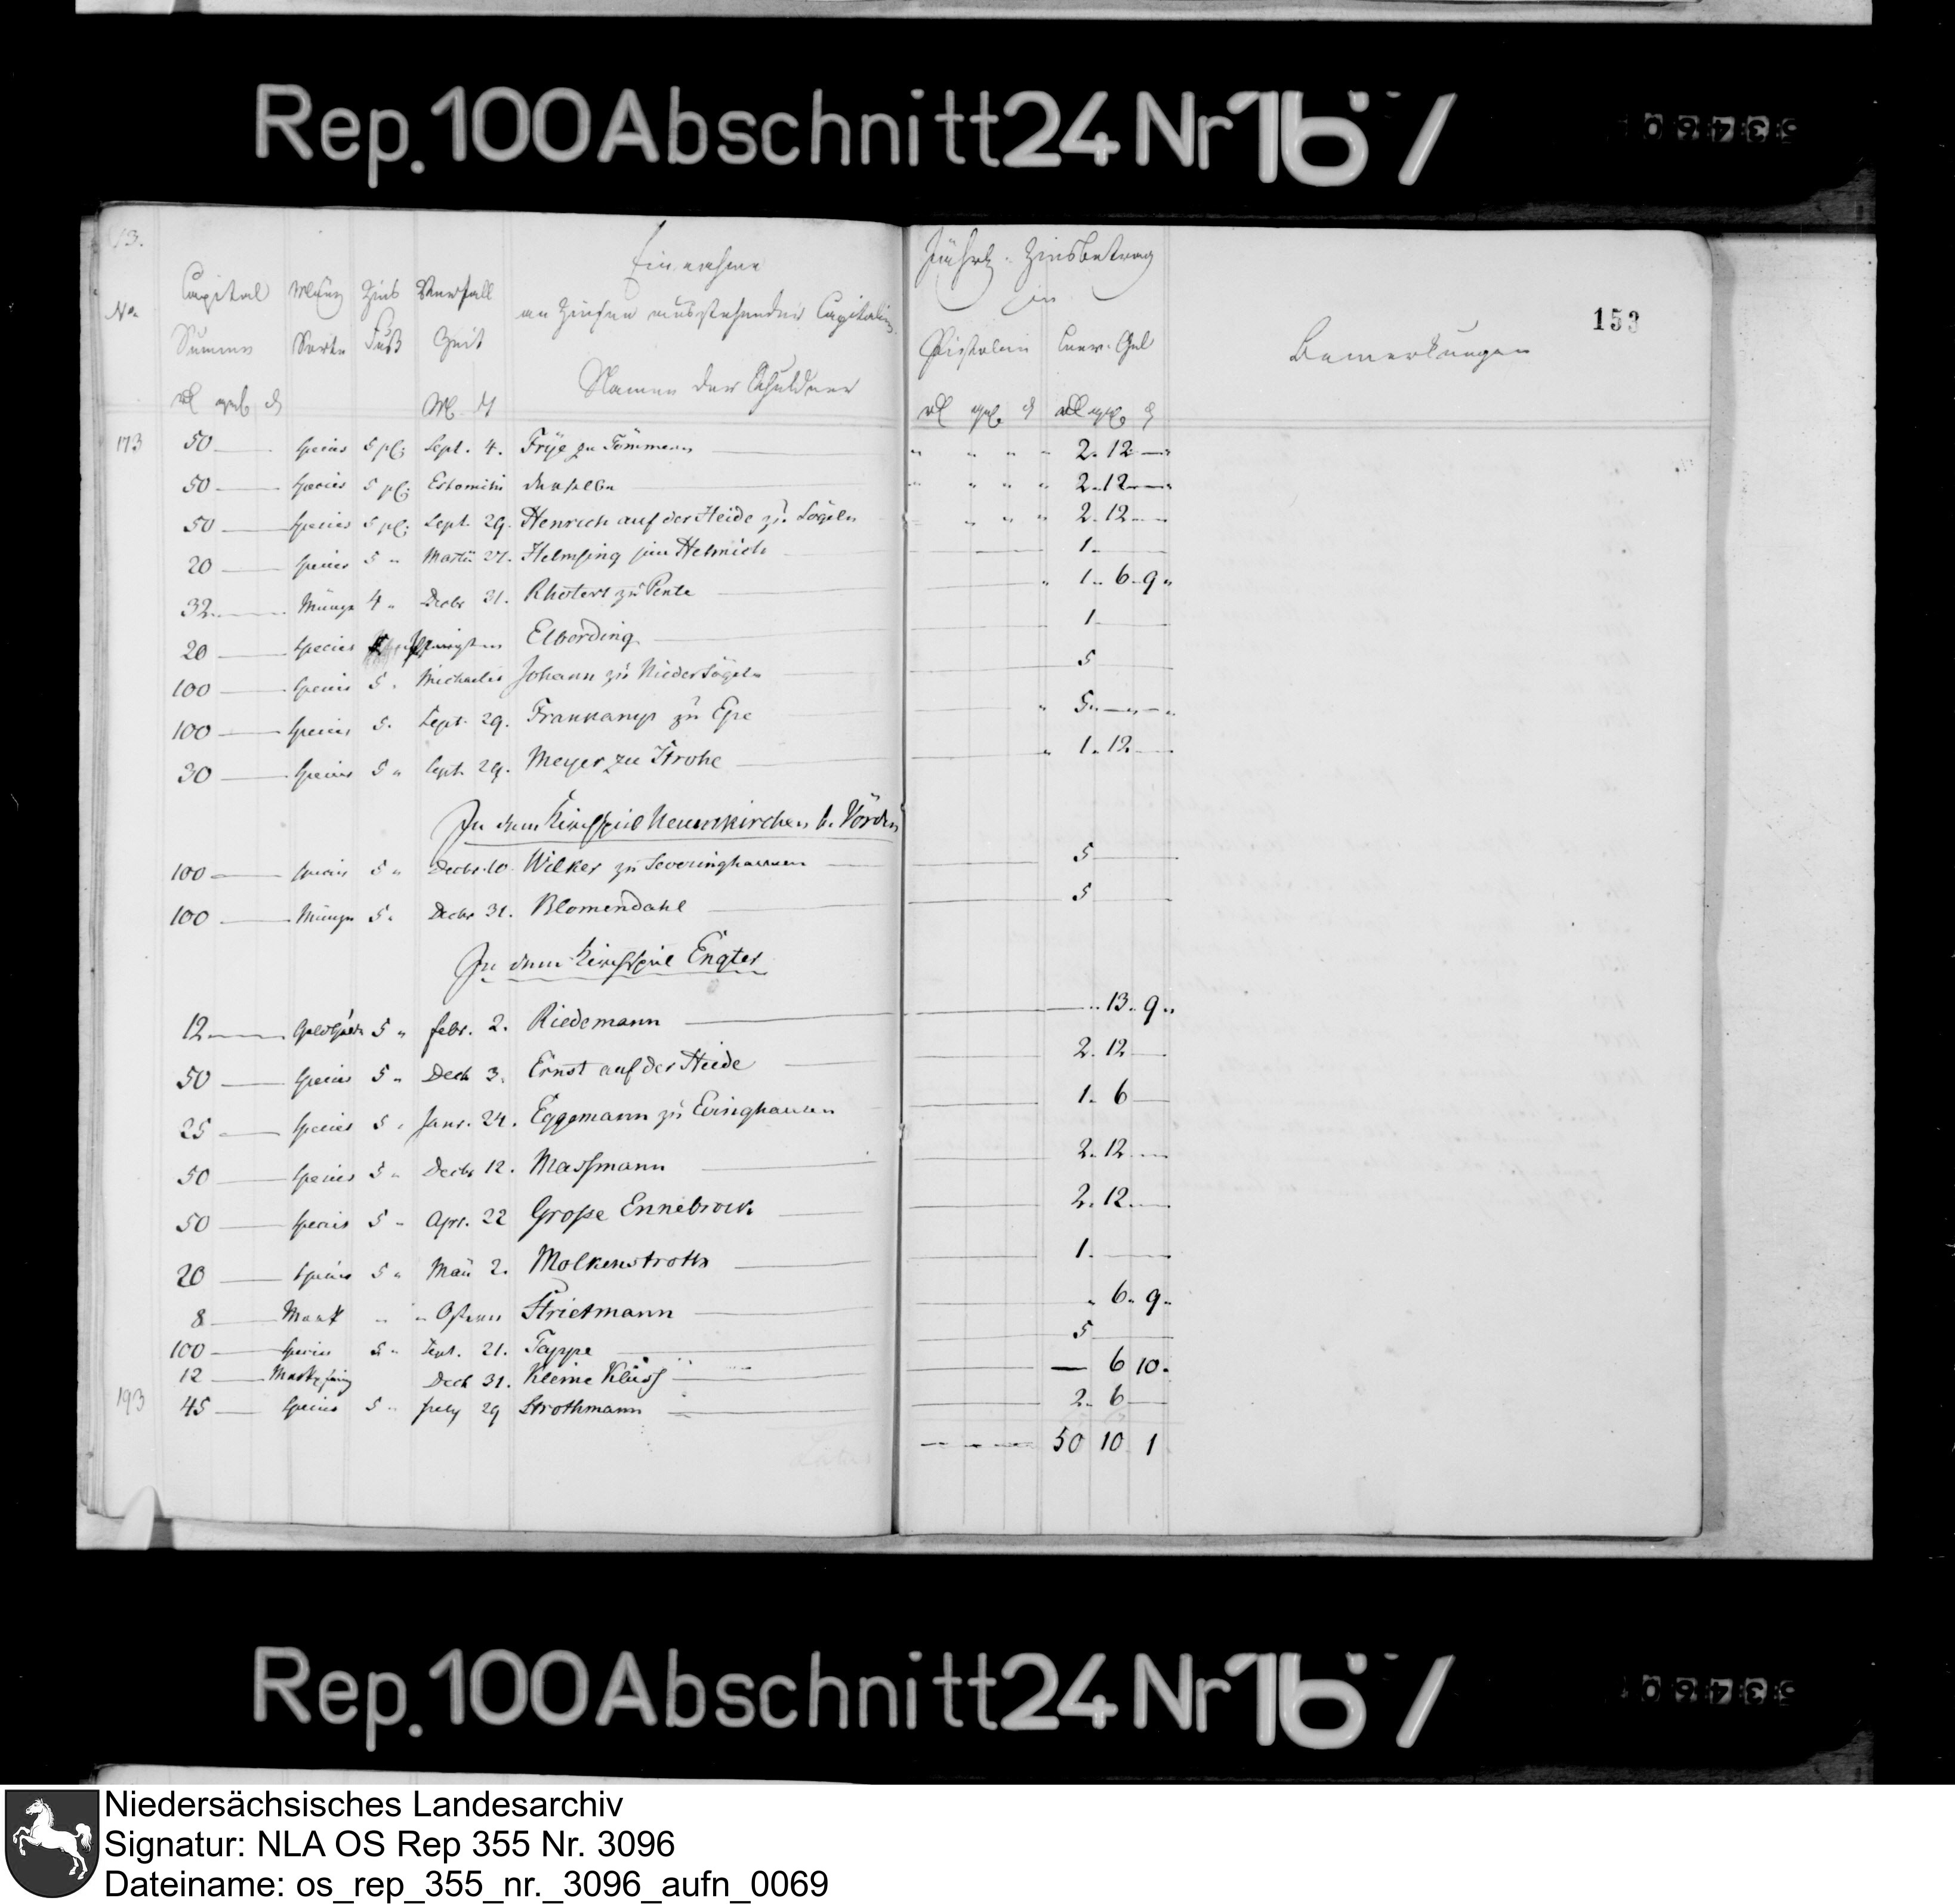 Rep.100 Abschnitt 24 Nr 167
153
Einnahme
an Zinsen ausstehender Capitalien
Namen der Schuldner
No. Capital Summe Münz Sorte Zins Fuß Verfall Zeit
Jährl. Zinsbetrag
in
Pistolen Cour. Geld
Bemerkungen
173 50 — Species 5 pC. Sept. 4. Frÿe zu — 2. 12 —
50 — Species 5 pC. Estomihi derselbe 2. 12 —
50 — Species 5 pC. Sept. 29. Henrich auf der Heide zu Sögeln 2. 12 —
20 — Species 5 " Martii 27. Helmsing 1. —
32 — Münze 4 " Decbr 31. Rhotert zu Pente — 1. 6. 9 "
20 — Species 5 Pfingsten Elbording — 1 —
100 — Species 5 . Michaelis Johann zu Niedersögeln — 5 —
100 — Species 5. Sept. 29. Frankamp zu Epe — 5 —
30 — Species 5 " Sept. 29. Meyer zu Strohe — 1. 12 —
In dem Kirchspiel Neuenkirchen b. Vörden
100 — Species 5 " Decbr. 10. Wilker zu Severinghausen — 5 —
100 — Münze 5. Decbr 31. Blomendahl — 5 —
In dem Kirchspiel Engter
12 — Goldgulden 5 " febr. 2. Riedemann — 13. 9 "
50 — Species 5 " Decb 3. Ernst auf der Heide — 2. 12 —
25 — Species 5 " Janr. 24. Eggemann zu Evinghausen 1. 6 —
50 — Species 5 " Decbr 12. Massmann — 2. 12 —
50 — Species 5 " Apr. 22 Große Ennebrock — 2. 12 —
20 — Species 5 " Maii 2. Molkenstroth — 1. —
8 — Mark " " Ostern Strietmann — " 6. 9 "
100 — Species 5 " Sept. 21. Tappe — 5 —
12 — Decb 31. Kleine Klüss — — 6 10.
193 45 — Species 5 " July 29 Strothmann — 2. 6 —
50 10 1
Rep.100 Abschnitt 24 Nr 167
Niedersächsisches Landesarchiv
Signatur: NLA OS Rep 355 Nr. 3096
Dateiname: os_rep_355_nr._3096_aufn_0069